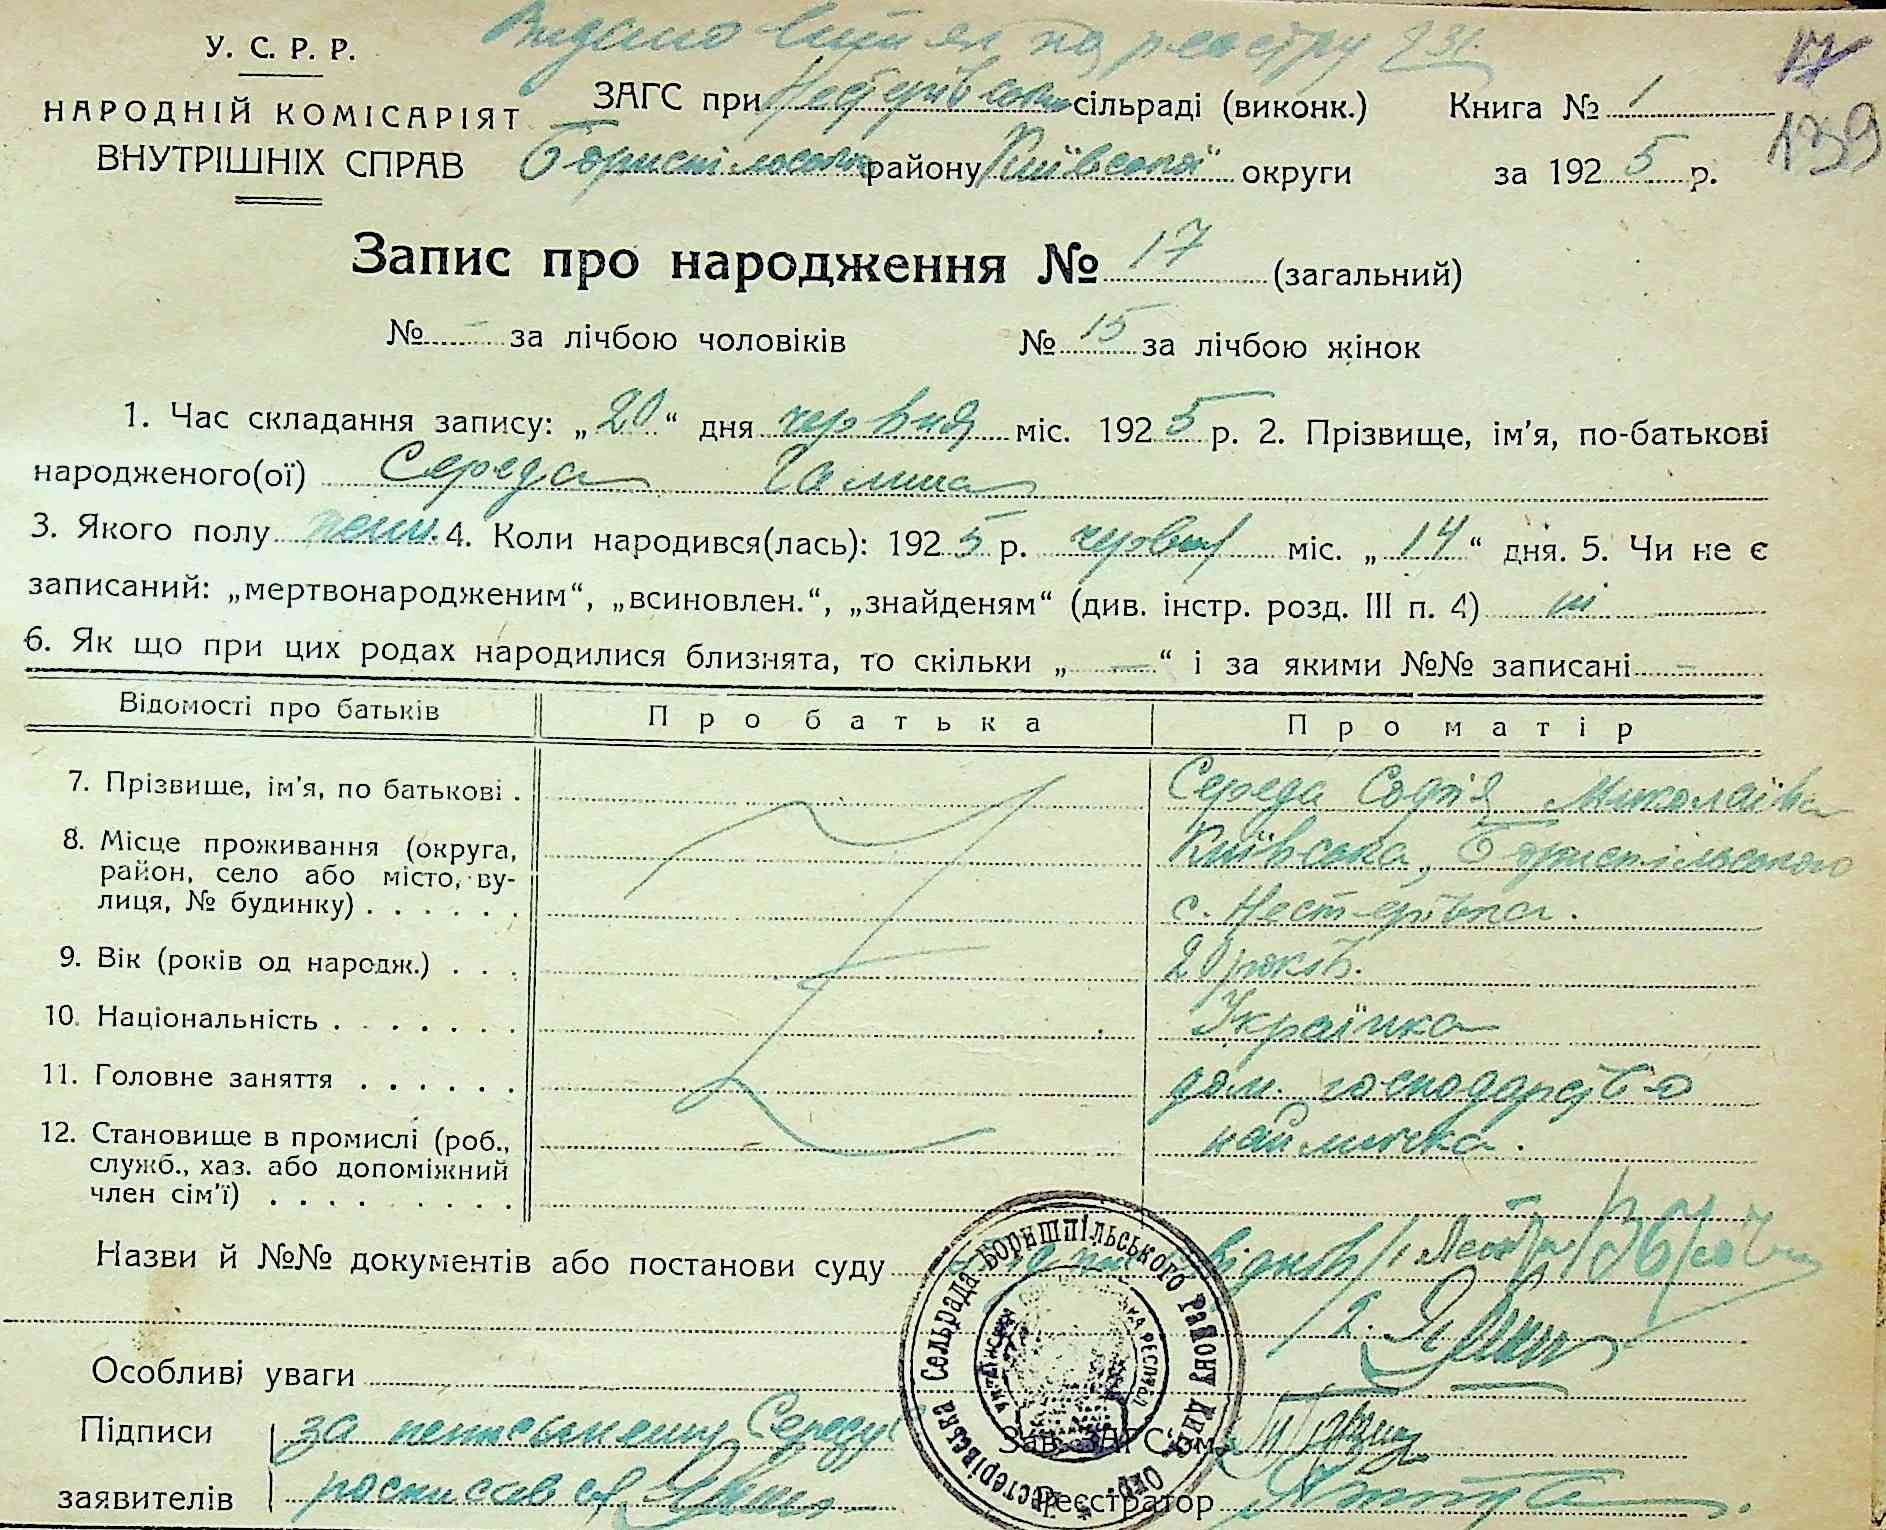 Видано витяг на реєстру 231.
У. С. Р. Р.
НАРОДНІЙ КОМІСАРІЯТ
ВНУТРІШНІХ СПРАВ
ЗАГС при Нестерівськ сільраді (виконк.)
Бориспільського району Київської округи
Книга № 1
за 1925 р.
17
139
Запис про народження № 17 (загальний)
№ - за лічбою чоловіків № 15 за лічбою жінок
1. Час складання запису: „20“ дня червня міс. 1925 р. 2. Прізвище, ім'я, по-батькові
народженого(ої) Середа Галина
3. Якого полу жін. 4. Коли народився(лась): 1925 р. червня міс. „14“ дня. 5. Чи не є
записаний: „мертвонародженим“, „всиновлен.“, „знайденям“ (див. інстр. розд. III п. 4) ні
6. Як що при цих родах народилися близнята, то скільки „—“ і за якими №№ записані -
Відомості про батьків Про батька Про матір
7. Прізвище, ім'я, по батькові . Середа Софія Миколаївна
8. Місце проживання (округа, район, село або місто, ву-лиця, № будинку) . . . . . . Київська, Бориспільського
с. Нестерівка.
9. Вік (років од народж.) . . . 20 років.
10. Національність . . . . . . . Українка
11. Головне заняття . . . . . . дом. господарство
12. Становище в промислі (роб., служб., хаз. або допоміжний член сім'ї) . . . . . . . . . наймичка.
Назви й №№ документів або постанови суду
Особливі уваги
Підписи за неписьменну Середу
заявителів росписався
Зав. ЗАГС'ом
Реєстратор
Нестерівська Сельрада Боришпільського Району Київ. Окр.